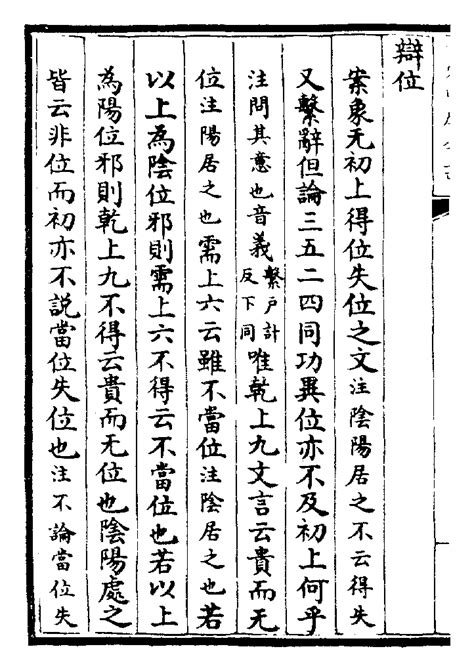 辯位
案象无初上得位失位之文注陰陽居之不云得失
又繫辭但論三五二四同功異位亦不及初上何乎
注問其意也音義繫户計反下同唯乾上九文言云貴而无
位注陽居之也需上六云雖不當位注陰居之也若
以上為陰位邪則需上六不得云不當位也若以上
為陽位邪則乾上九不得云貴而无位也陰陽處之
皆云非位而初亦不說當位失位也注不論當位失